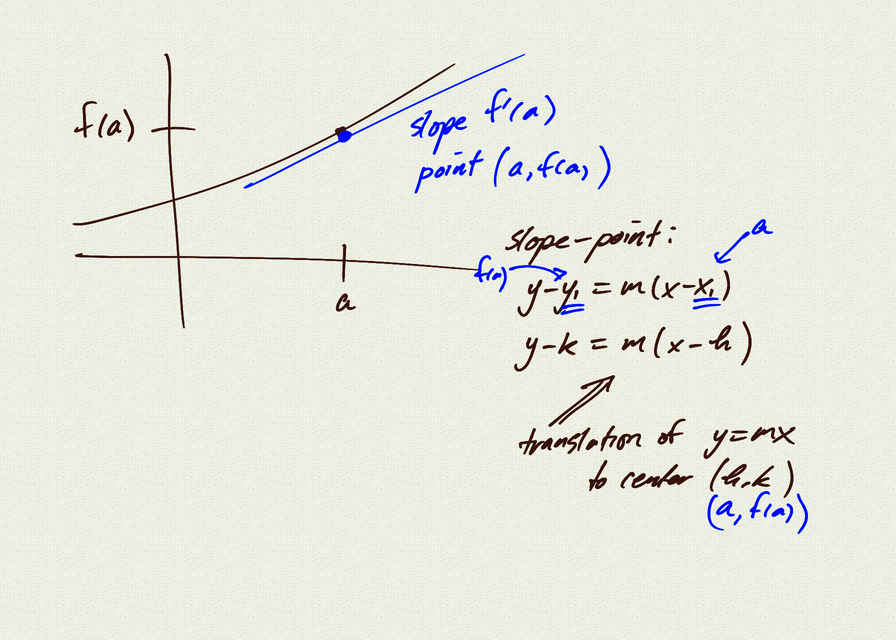 f(a)
slope f'(a)
point (a, f(a))
a
slope-point:
a
f(a)
y-y₁ = m(x-x₁)
y-k = m(x-h)
translation of y=mx
to center (h,k)
(a, f(a))